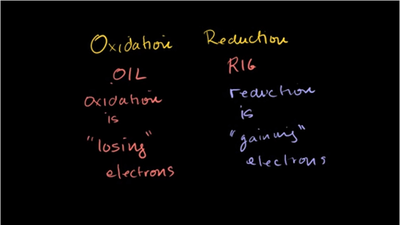 Oxidation Reduction
OIL RIG
oxidation reduction
is is
"losing" "gaining"
electrons electrons